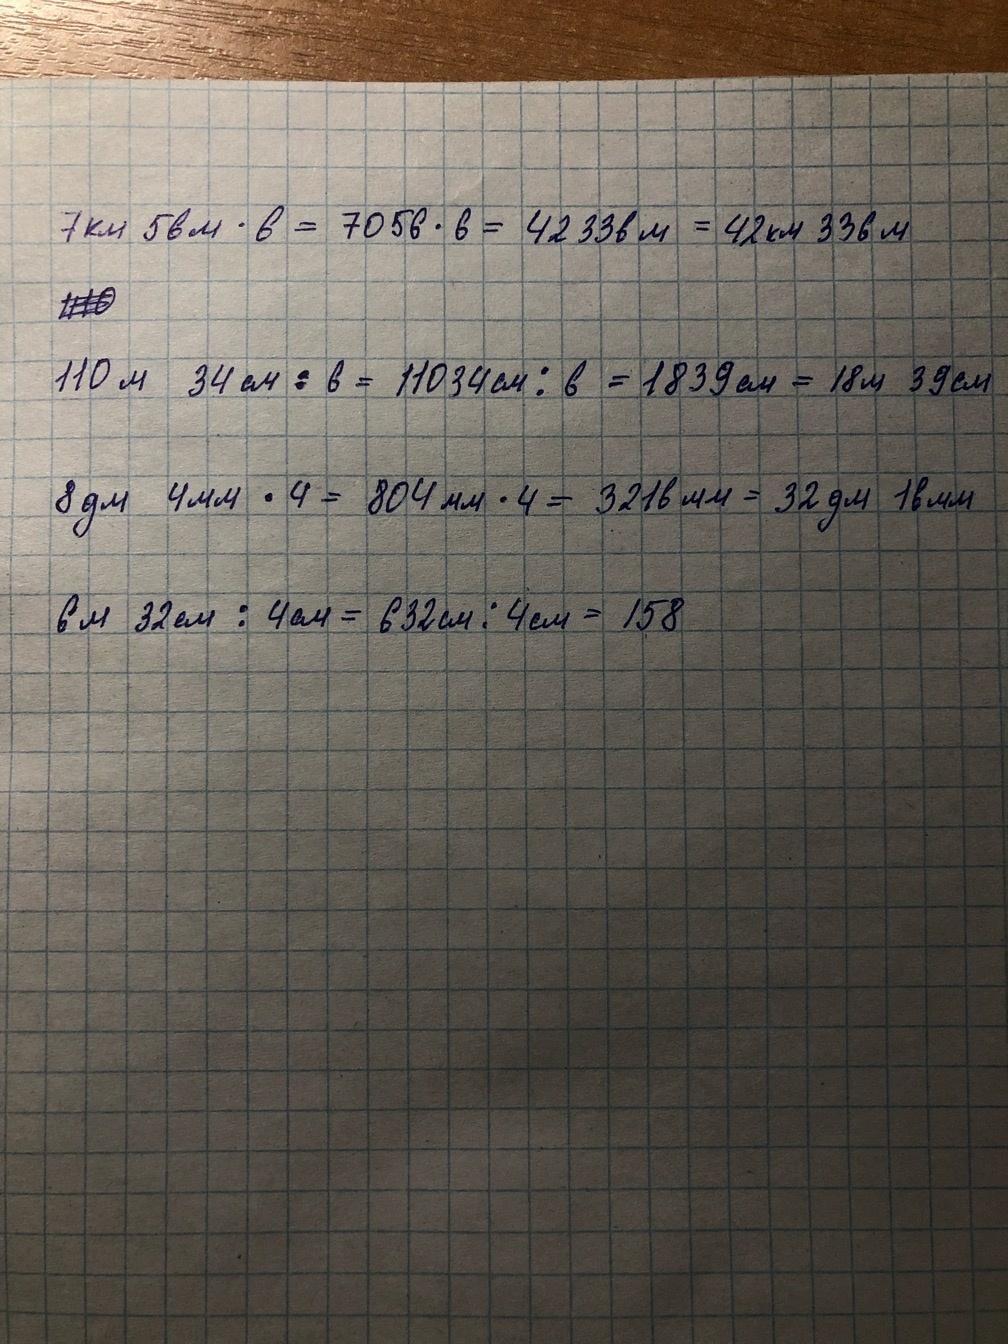 7км 56м · 6 = 7056 · 6 = 42336м = 42км 336м
110м 34см : 6 = 11034см : 6 = 1839см = 18м 39см
8дм 4мм · 4 = 804мм · 4 = 3216мм = 32дм 16мм
6м 32см : 4см = 632см : 4см = 158